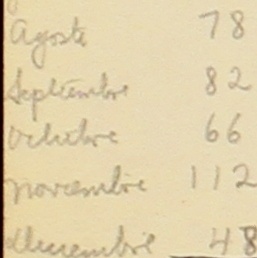 Agosto 78
Septiembre 82
Octubre 66
Noviembre 112
Diciembre 48